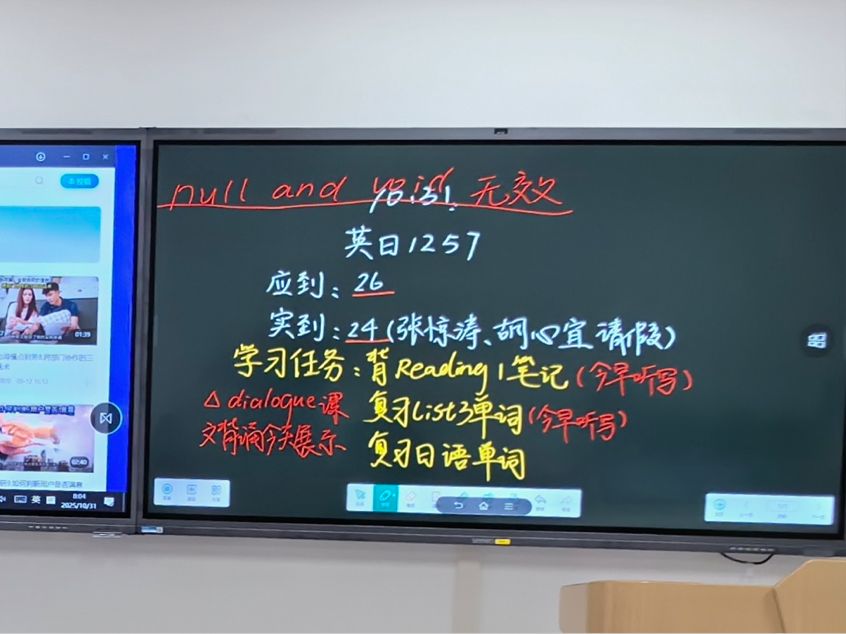 null and void 无效
10.31
英日1257
应到：26
实到：24（张惊涛、胡心宜请假）
学习任务：背Reading 1笔记（今早听写）
△dialogue课 复习List3单词（今早听写）
文背诵今天展示 复习日语单词
01:39
02:40
英
8:04
2025/10/31